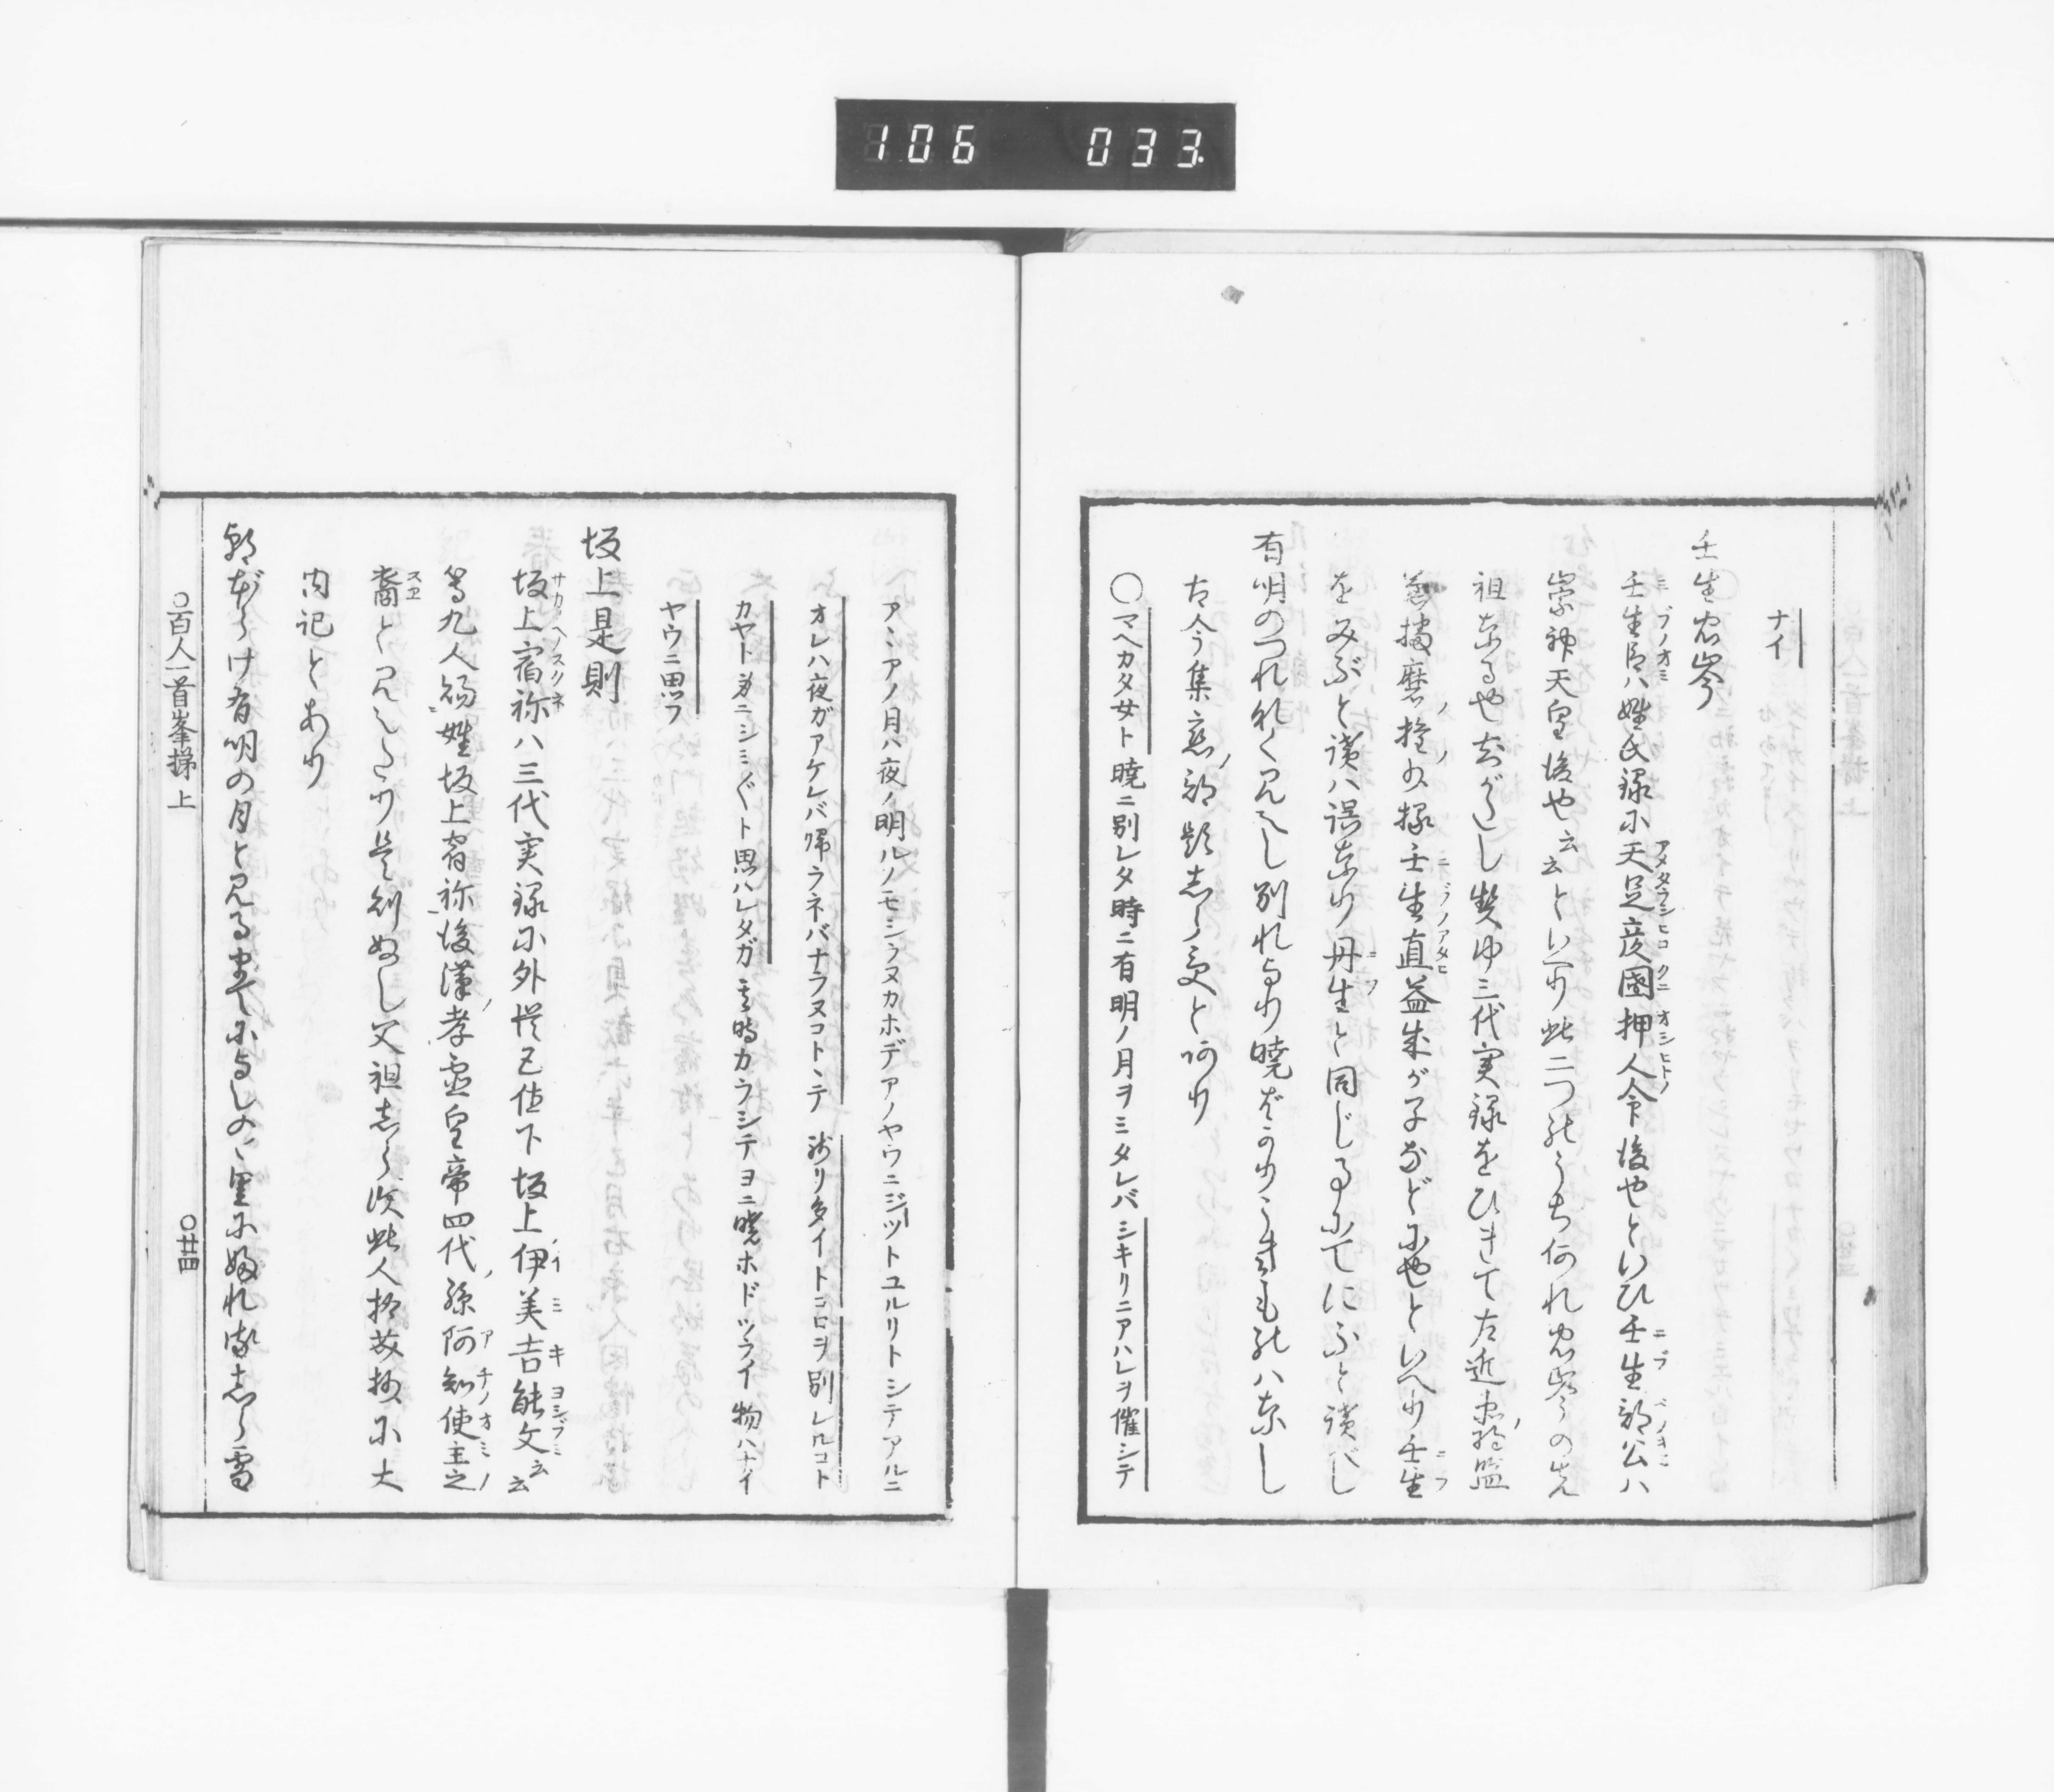 106 033
ナイ
壬生忠岑
壬生臣ハ姓氏録に天足彦國押人命後也といひ壬生部公ハ
崇神天皇後也云云といへり此二つのうち何れ忠岑の先
祖なるや知がたし契冲三代実録をひきて左近衛将監
兼播磨権少掾壬生直益成が子などにやといへり壬生
をみぶと讀ハ誤なり丹生と同じるにてにふと讀べし
有明のつれなく見えし別れより暁ばかりうきものハなし
古今集恋部題志らずと阿り
○マヘカタ女ト暁ニ別レタ時ニ有明ノ月ヲミタレバシキリニアハレヲ催シテ
アヽアノ月ハ夜ノ明ルノモシラヌカホデアノヤウニジツトユルリトシテアルニ
オレハ夜ガアケレバ帰ラネバナラヌコトヽテ残リ多イトコロヲ別レルコト
カヤト身ニシミ〴〵ト思ハレタガ其時カラシテヨニ暁ホドツライ物ハナイ
ヤウニ思フ
坂上是則
坂上宿祢ハ三代実録に外従五位下坂上伊美吉能文云云
等九人賜姓坂上宿祢後漢孝霊皇帝四代孫阿知使主之
裔と見えたり是則ぬし父祖志らず此人
内記とあり
朝ぼらけ有明の月と見るまでによしのゝ里に婦れる志ら雪
○百人一首峯梯 上 ○廿四